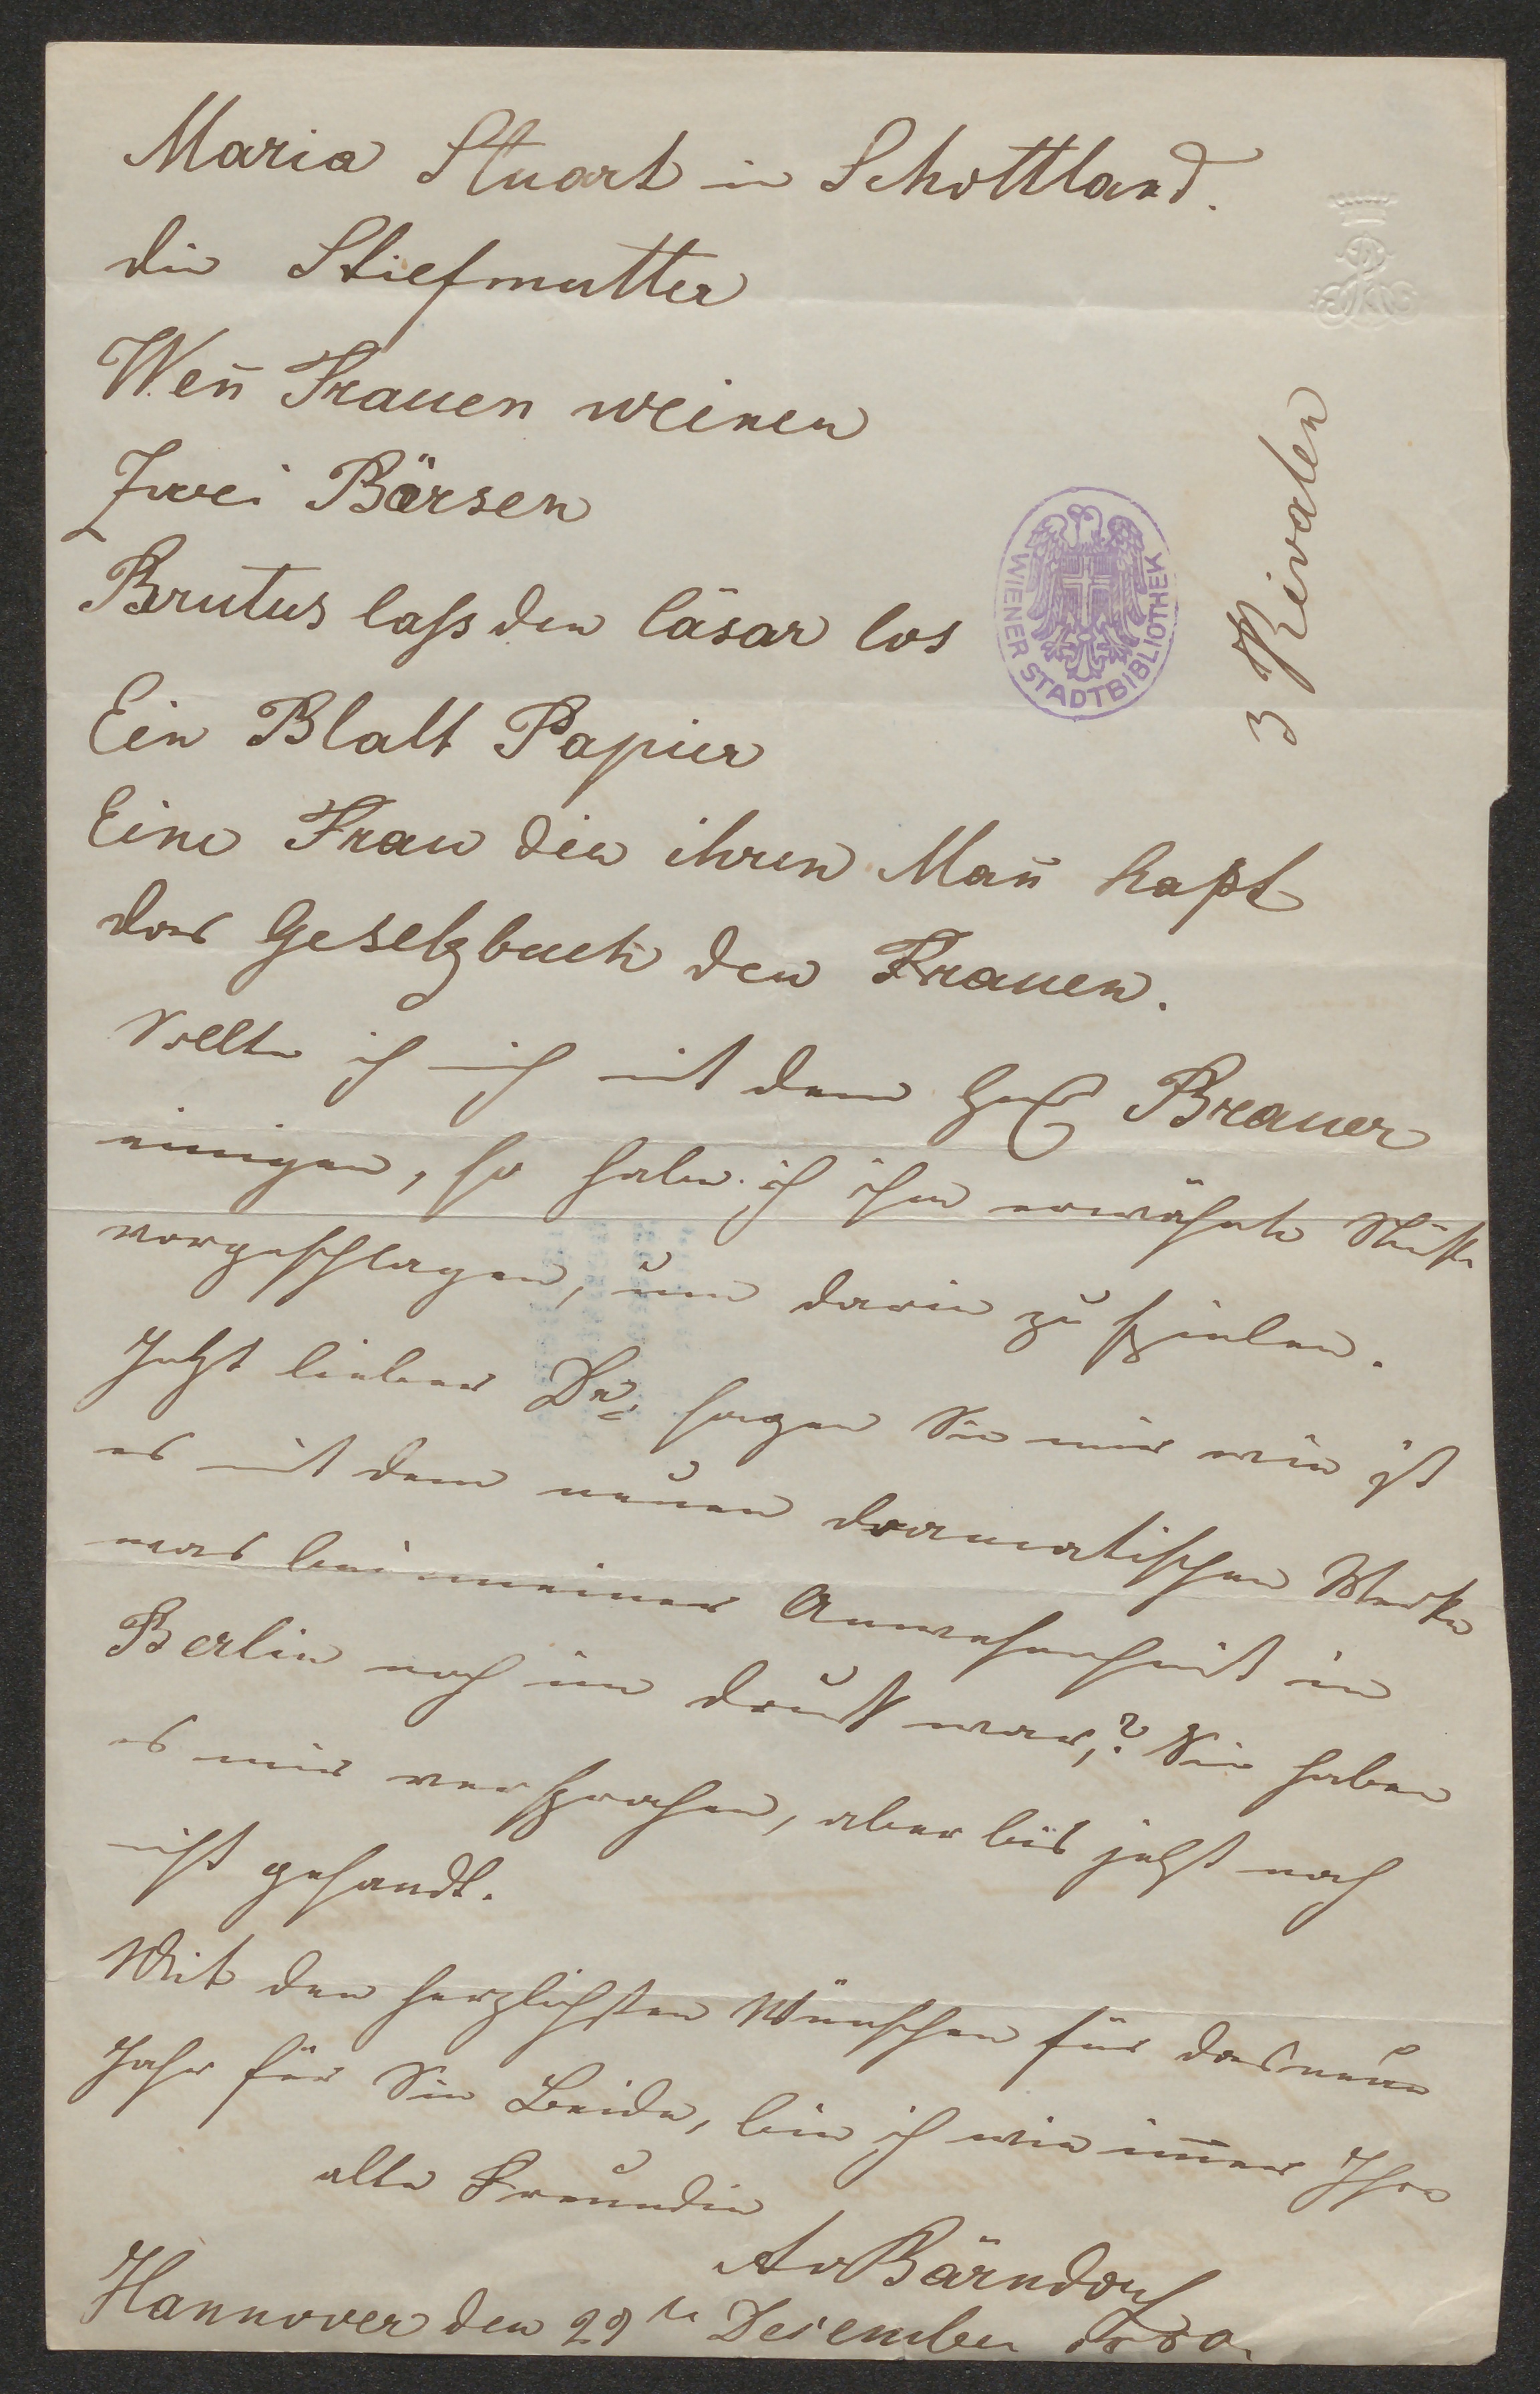 Maria Stuart in Schottland.
die Stiefmutter
Wen̄ Frauen weinen
Zwei Börsen
Brutus lass den Cäsar los
Ein Blatt Papier
Eine Frau die ihren Man̄ hasst
das Gesetzbuch der Frauen.
3 Rivalen
WIENER STADTBIBLIOTHEK
Sollte ich mich mit dem Brauer
einigen, so habe ich ihm erwähnte Stücke
vorgeschlagen, um darin zu spielen.
Jetzt lieber Dr. sagen Sie mir wie ist
es mit dem neuen dramatischen Werke
was bei meiner Anwesenheit in
Berlin noch im Druck war,? Sie haben
es mir versprochen, aber bis jetzt noch
nicht gesandt.
Mit den herzlichsten Wünschen für das neue
Jahr für Sie Beide, bin ich wie im̄er Ihre
alte Freundin
Bärndorf
Hannover den 29te Desember